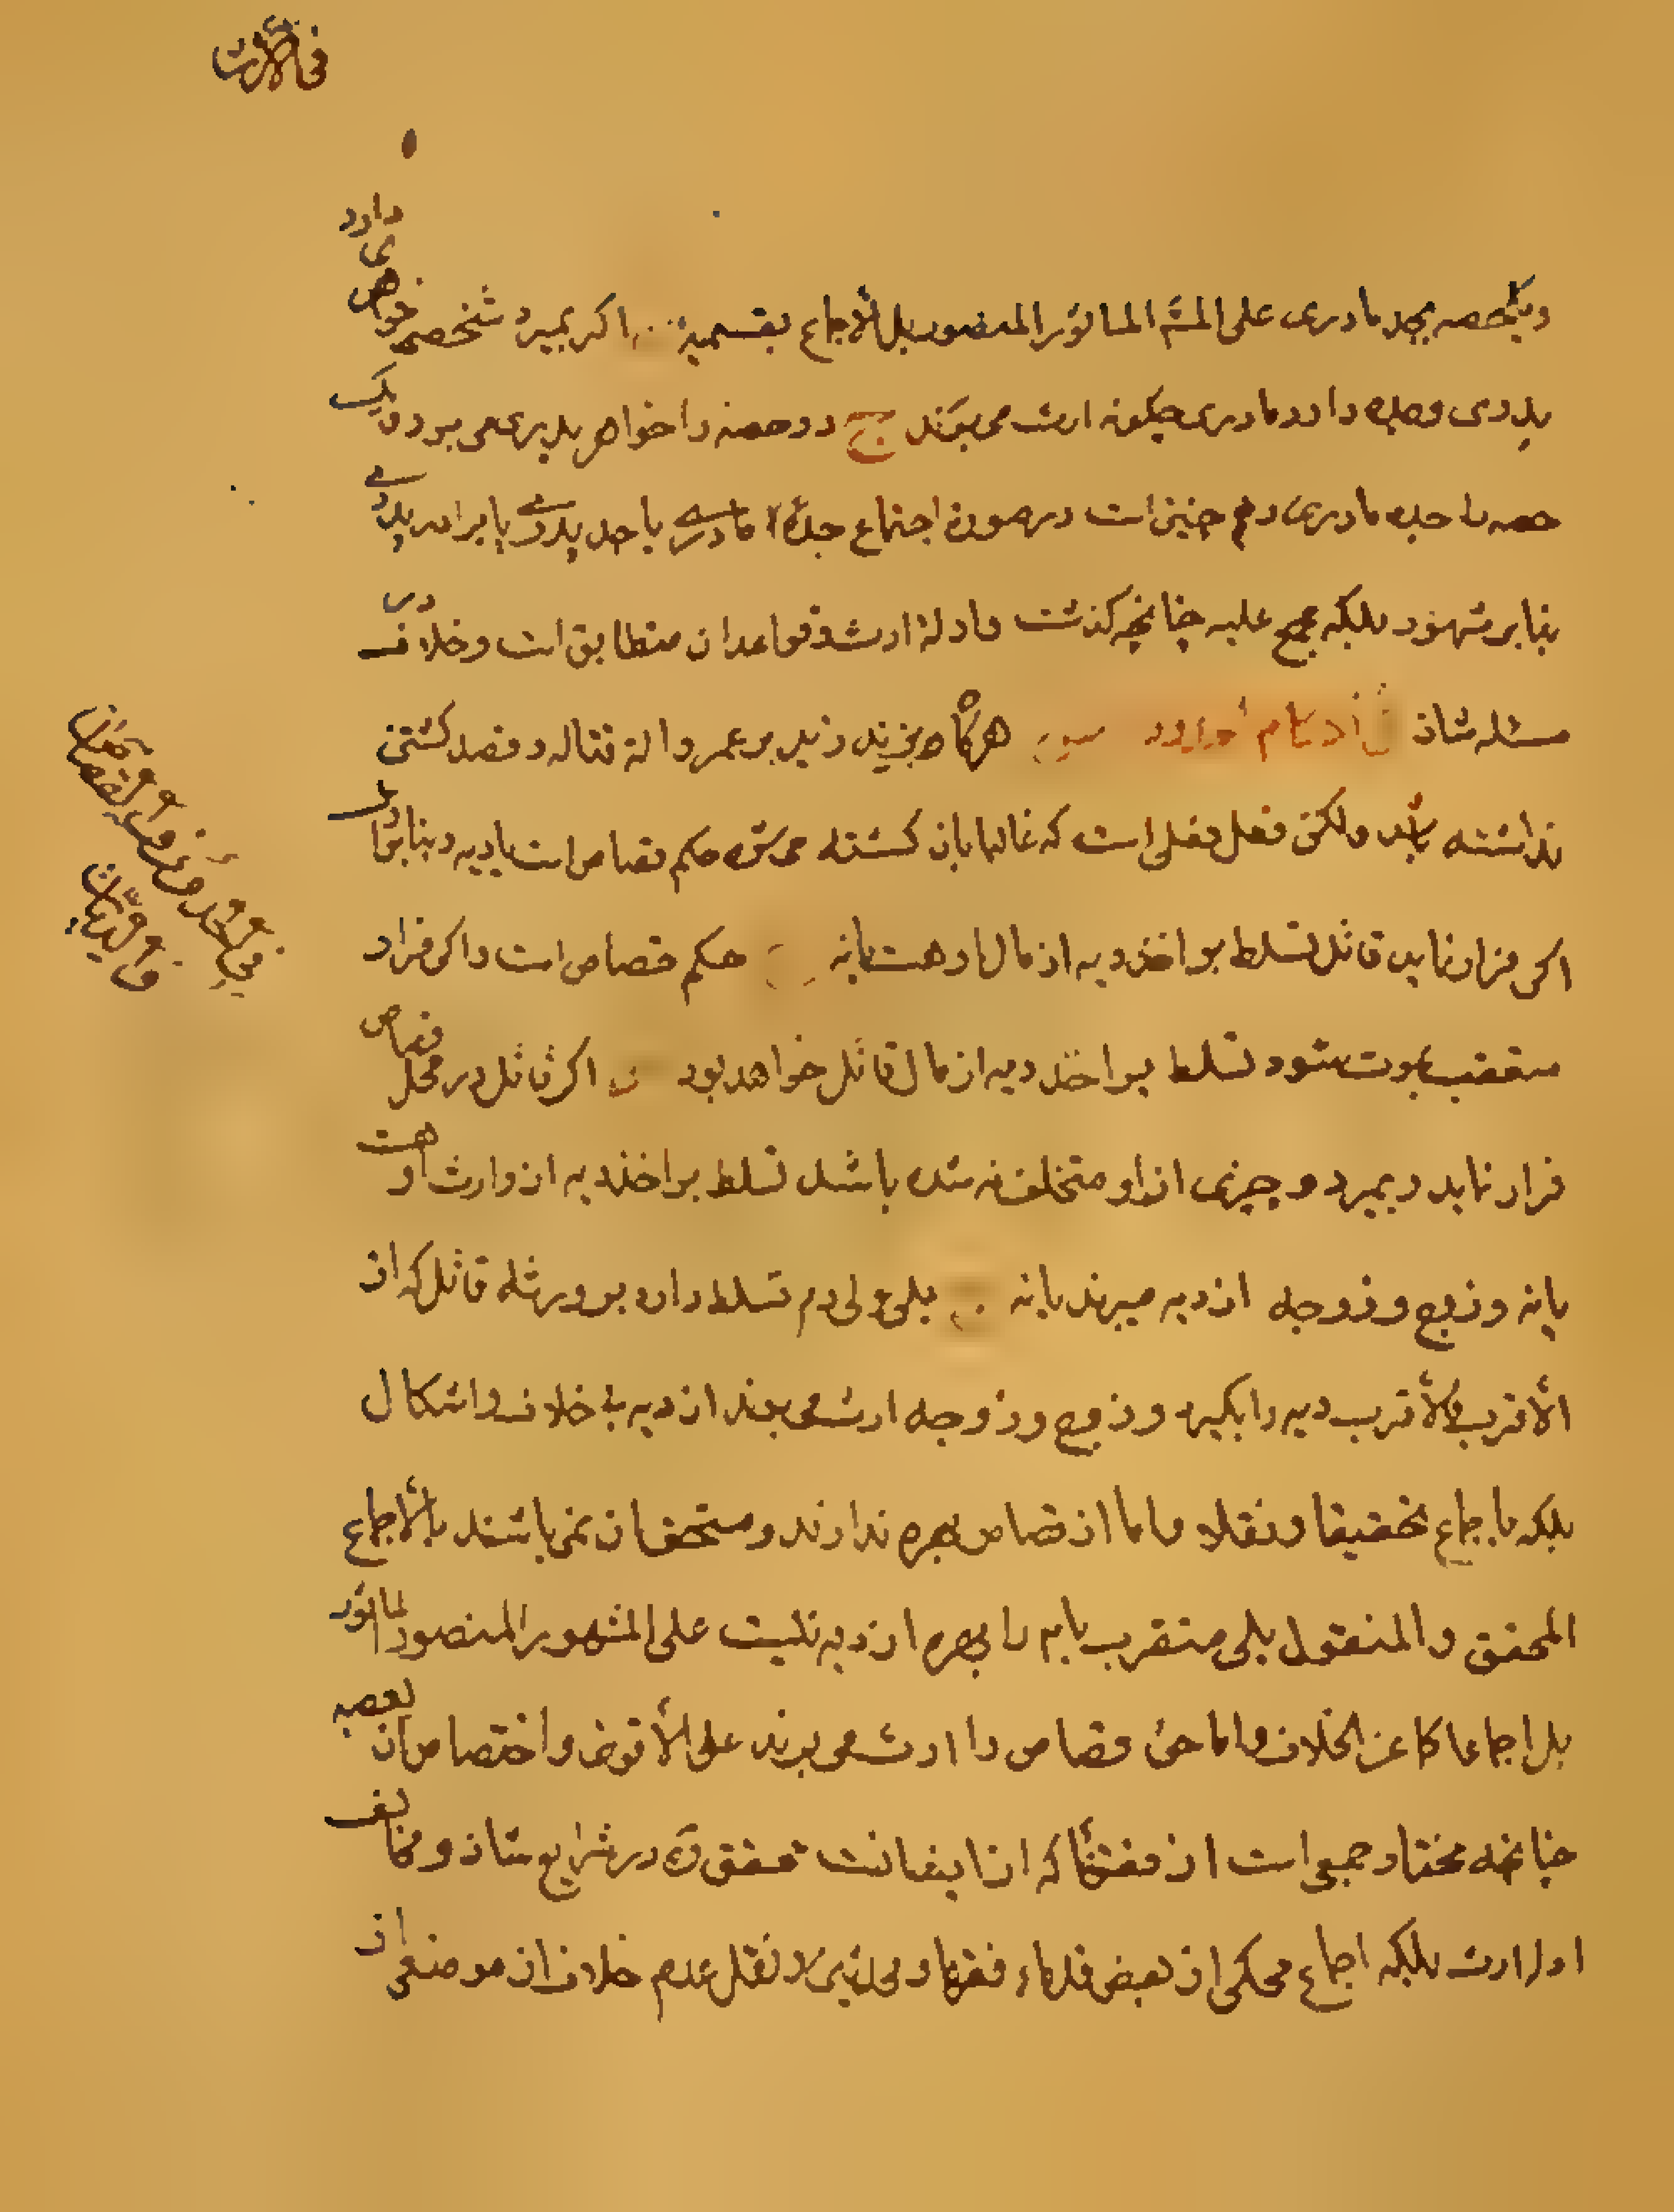 فی الأرث
ویکحصه بجد مادری علی المش المأثور المنصور بل الأجماع بقسمیه اگر بمیرد شخصی خواهری دارد
پدری وجده دارد مادری چگونه ارث می‌برند ج دو حصه را خواهر پدری می برد و یک
حصه را جده مادری و هم چنین است در صورة اجتماع جده مادری با جد پدری یا برادر پدری
بنا بر مشهور بلکه مجمع علیه چنانچه گذشت و ادلهٔ ارث و قواعد ان متطابق است و خلاف در این
مسئله شاذ هرگاه بزند زید بر عمرو الهٔ قتاله و قصد کشتن
نداشته باشد ولکن فعل فعلی است که غالبا بان کشته می‌شود حکم قصاص است یا دیه و بنا بر اول
اگر فرار نماید قاتل تسلط بر اخذ دیه از مال او هست یا نه حکم قصاص است و اگر فرار
متعقب بموت شود تسلط بر اخذ دیه از مال قاتل خواهد بود اگر قاتل در محل قصاص
فرار نماید و بمیرد و چیزی از او متخلف نه شده باشد تسلط بر اخذ دیه از وارث او هست
یا نه و زوج و زوجه از دیه میبرند یا نه بلی ولی دم تسلط دارد بر ورثه قاتل که از
الأقرب فالأقرب دیه را بگیرد و زوج و زوجه ارث می‌برند از دیه بی خلاف و اشکال
بلکه باجماع تحقیقا و نقلا و اما از قصاص بهره ندارند و مستحق ان نمی‌باشند بالأجماع
المحقق والمنقول بلی متقرب بام را بهره از دیه نیست علی المشهور المنصور المأثور
بل اجماعا کما عن الخلاف و اما حق قصاص را ارث می برند علی الأقوی و اختصاص ان بعصبه
چنانچه مختار جمعی است از فقهٔا که از ایشانست محقق ره در شرایع شاذ و مخالف
ادلهٔ ارث بلکه اجماع محکی از بعض قدماء فقها و محدثین و نقل عدم خلاف از موضعی از
فی الحدود و فی القصاص
و الدیات